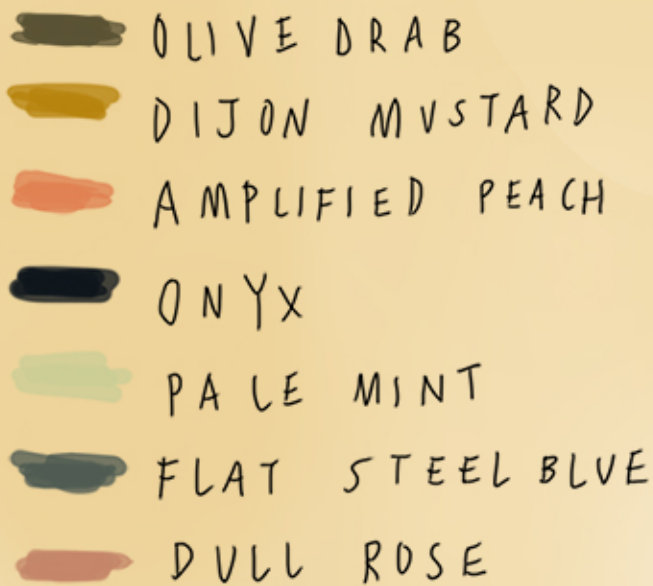 OLIVE DRAB
DIJON MUSTARD
AMPLIFIED PEACH
ONYX
PALE MINT
FLAT STEEL BLUE
DULL ROSE